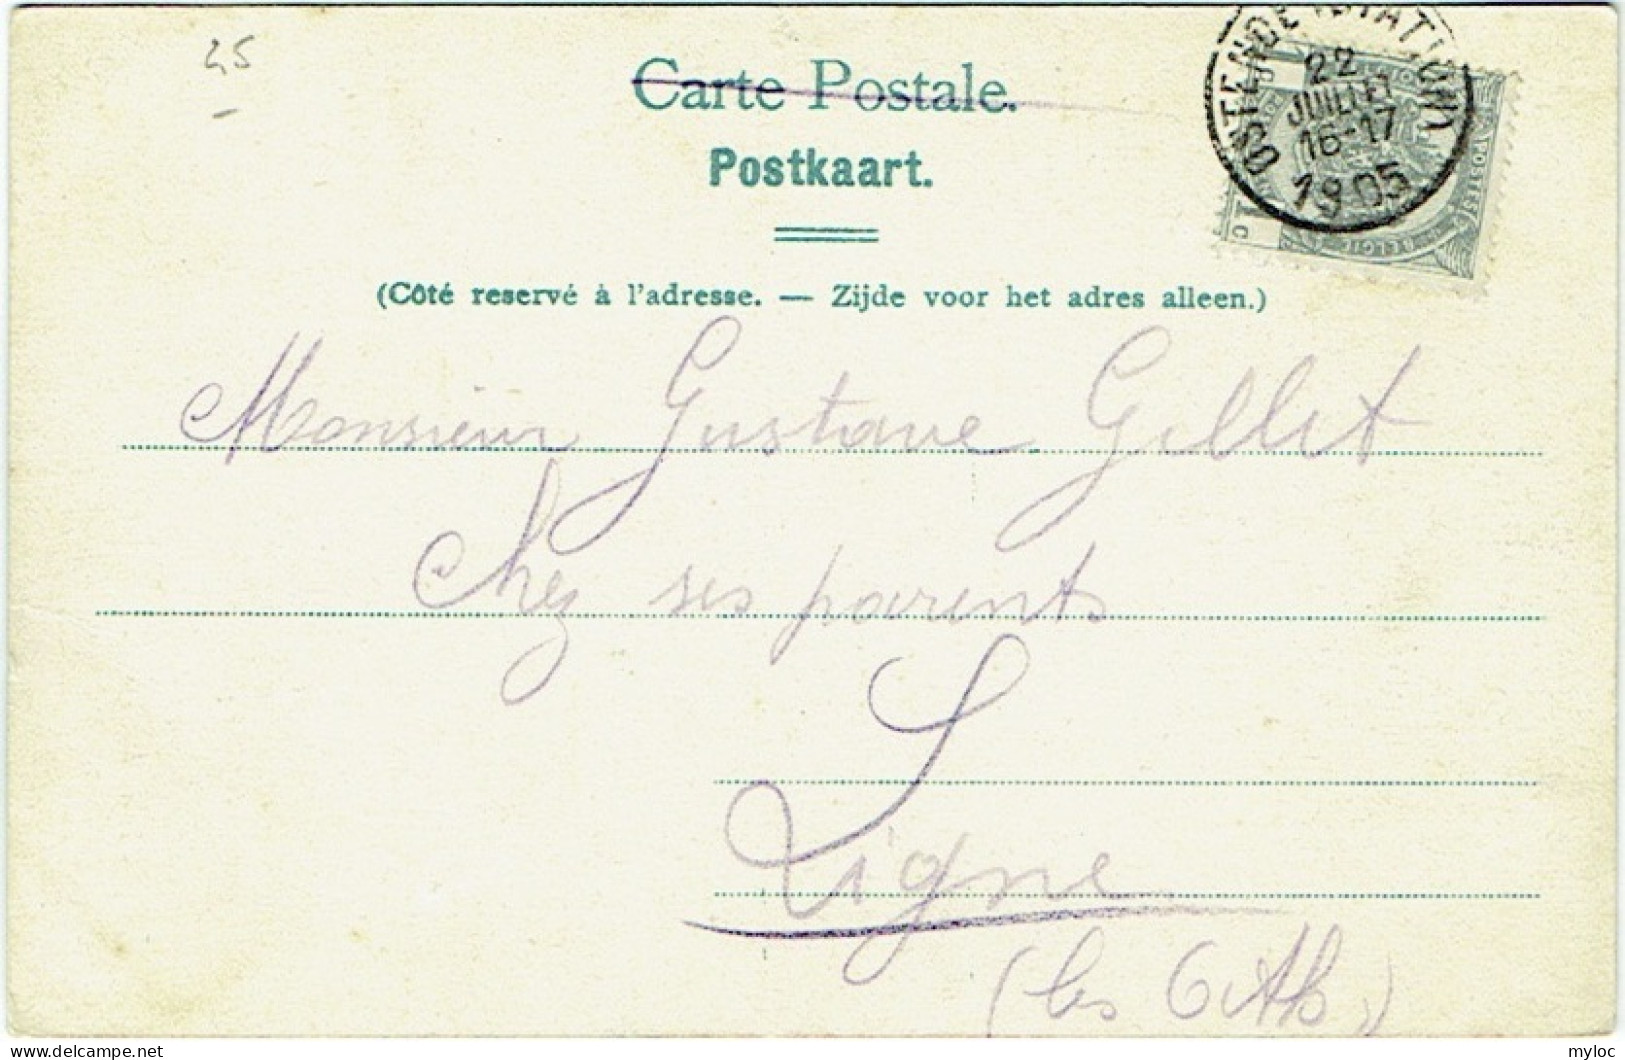 45
Carte Postale.
Postkaart.
OSTENDE (STATION)
22
JUILLET
16-17
1905
(Côté reservé à l'adresse. — Zijde voor het adres alleen.)
Monsieur Gustave Gillet
Chez ses parents
Ligne
(lez Ath)
myloc
delcampe.net